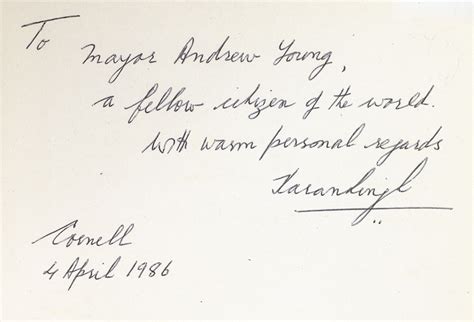 To
Mayor Andrew Young,
a fellow citizen of the world.
With warm personal regards
Karan Singh
Cornell
4 April 1986